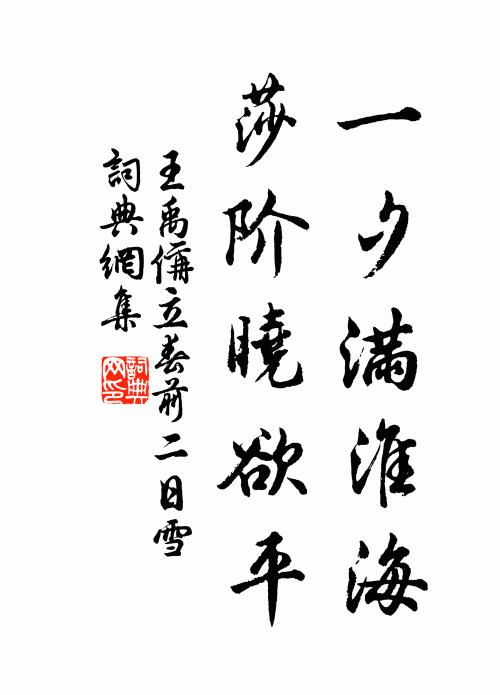 一夕满淮海
莎阶曉欲平
王禹偁立春前二日雪
詞典網集
詞典網印